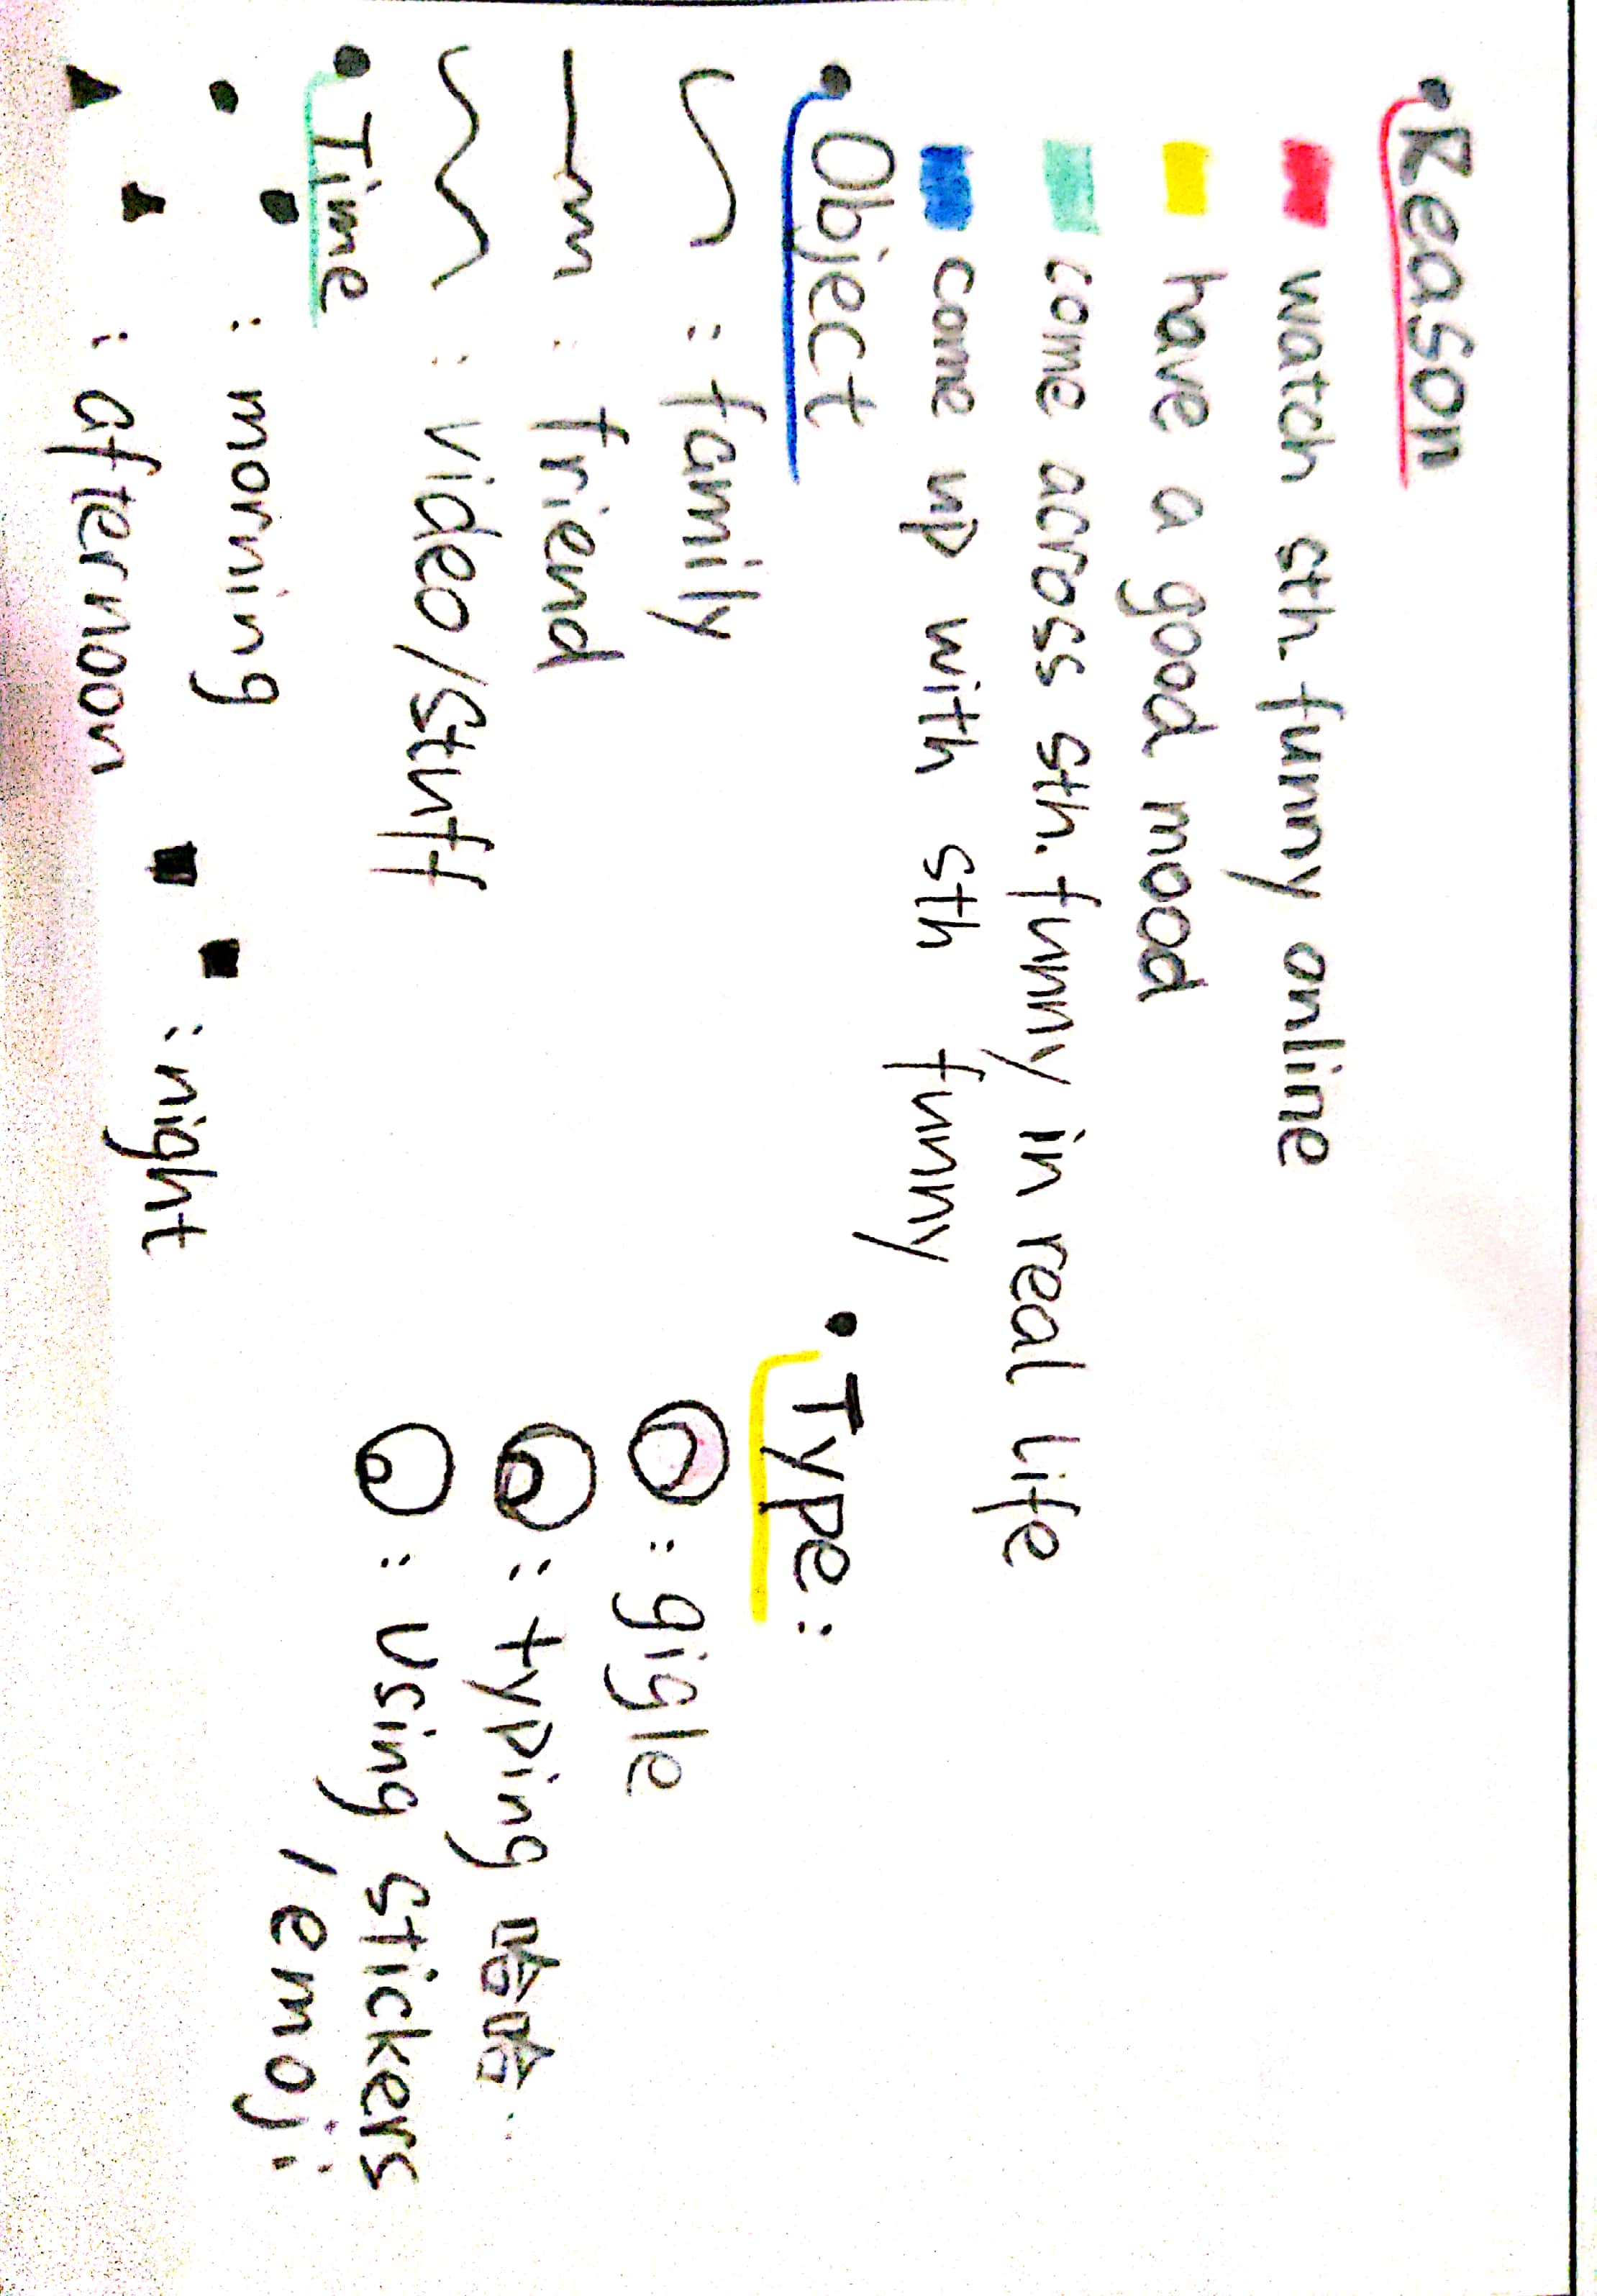 • Reason
watch sth. funny online
have a good mood
come across sth. funny in real life
come up with sth funny
• Object
: family
: friend
: video/stuff
• Time
: morning
: afternoon
: night
• Type:
: gigle
: typing 哈哈
: using stickers
/emoji